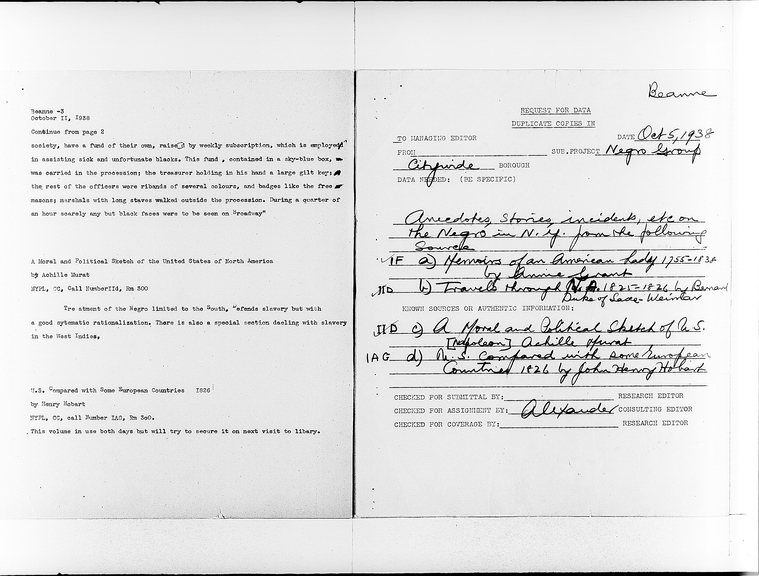 Beanne -3
October II, 1938
Continue from page 2
society, have a fund of their own, raised by weekly subscription, which is employed
in assisting sick and unfortunate blacks. This fund, contained in a sky-blue box,
was carried in the procession; the treasurer holding in his hand a large gilt key;
the rest of the officers wore ribands of several colours, and badges like the free
masons; marshals with long staves walked outside the procession. During a quarter of
an hour scarely any but black faces were to be seen on Broadway"
A Moral and Political Sketch of the United States of North America
by Achille Murat
NYPL, CC, Call NumberIId, Rm 300
Tre atment of the Negro limited to the South, "efends slavery but with
a good sytematic rationalization. There is also a special section daeling with slavery
in the West Indies.
U.S. Compared with Some European Countries I826
by Henry Hobart
NYPL, CC, call Number IAG, Rm 300.
This volume in use both days but will try to secure it on next visit to libary.
Beanne
REQUEST FOR DATA
DUPLICATE COPIES IN
TO MANAGING EDITOR DATE Oct 5, 1938
FROM SUB.PROJECT Negro Group
Citywide BOROUGH
DATA NEEDED: (BE SPECIFIC)
Anecdotes, stories, incidents, etc on
the Negro in N.Y. from the following
Source
IF a) Memoirs of an American Lady 1755-1838
by Annie Grant
IID b) Travels through N.A. 1825-1826 by Bernard
Duke of Saxe-Weimar
KNOWN SOURCES OR AUTHENTIC INFORMATION:
IID c) A Moral and Political Sketch of U.S.
[Napoleon] Achille Murat
IAG d) U.S. Compared with some European
Countries 1826 by John Henry Hobart
CHECKED FOR SUBMITTAL BY: RESEARCH EDITOR
CHECKED FOR ASSIGNMENT BY: Alexander CONSULTING EDITOR
CHECKED FOR COVERAGE BY: RESEARCH EDITOR